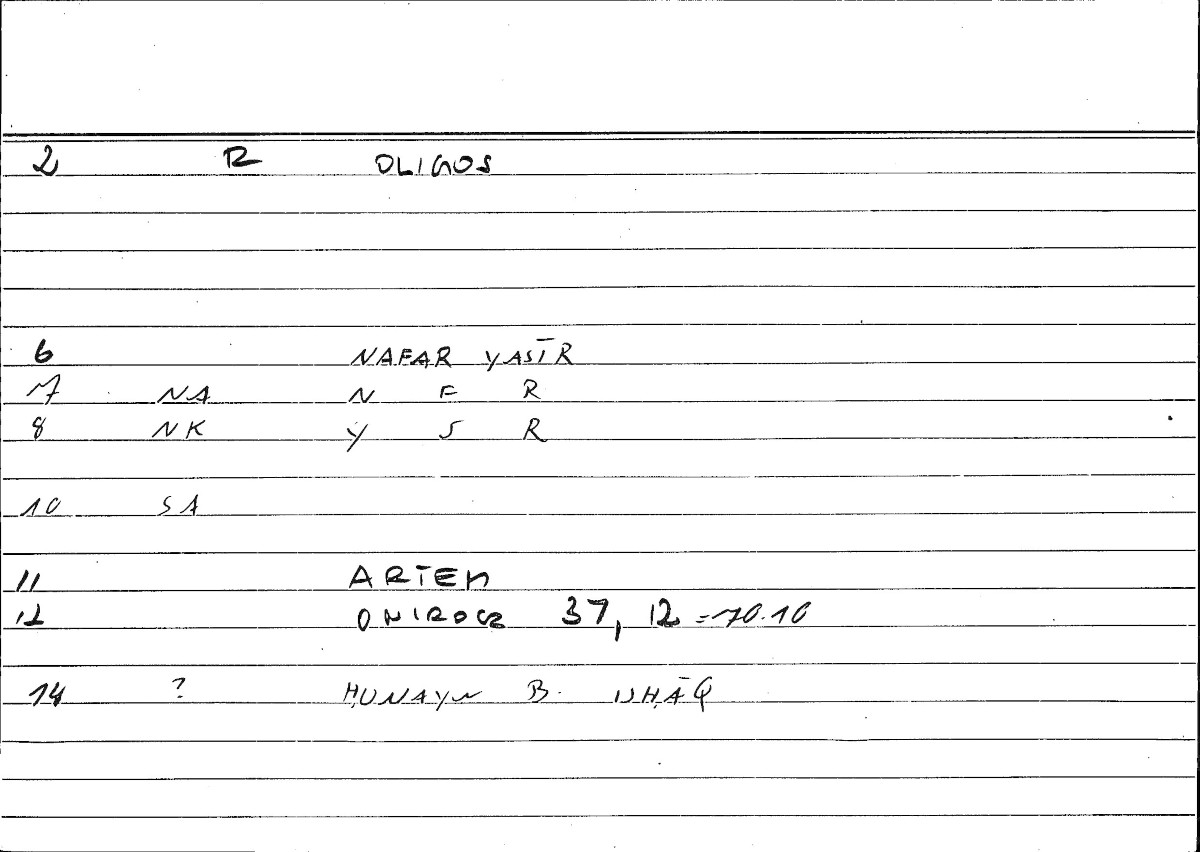 2 R OLIGOS
6 NAFAR YASĪR
7 NA N F R
8 NK Y S R
10 SA
11 ARTEM
12 ONIROCR 37, 12 = 70.10
14 ? ḤUNAYN B. ISḤĀQ